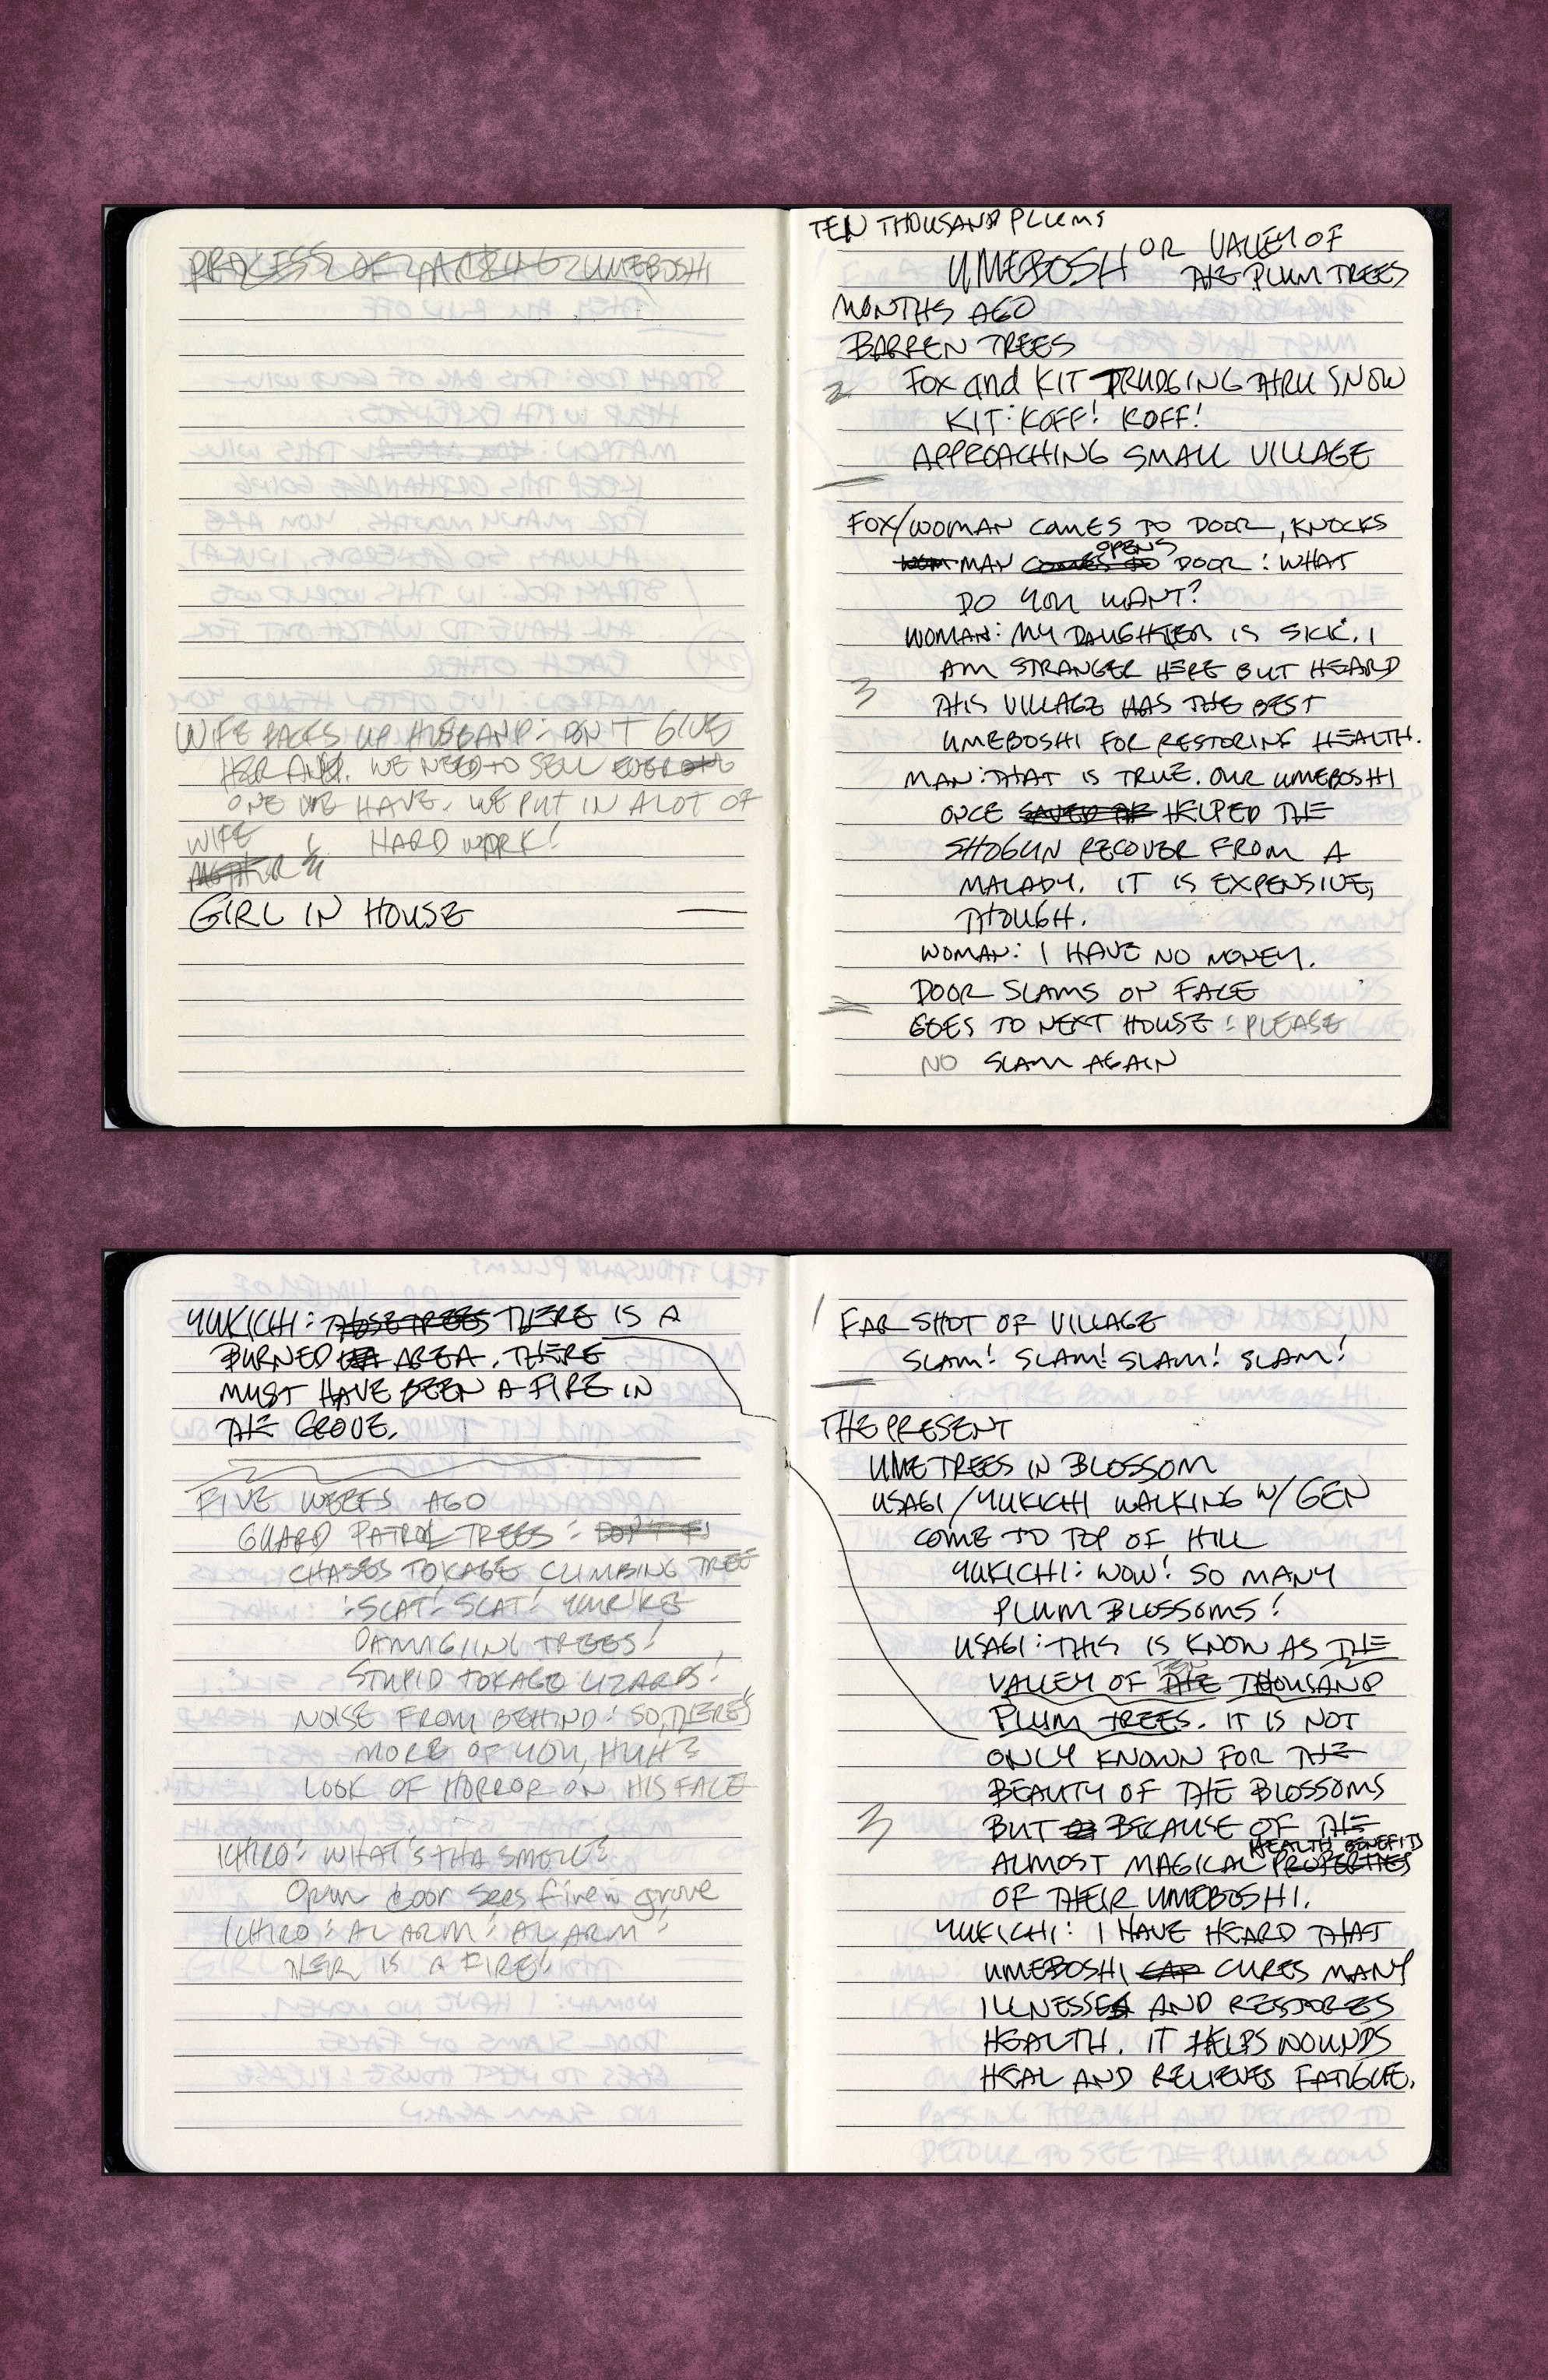 PROCESS OF MAKING UMEBOSHI
WIFE BACKS UP HUSBAND: DON'T GIVE
HER ANY. WE NEED TO SELL EVERY
ONE WE HAVE. WE PUT IN A LOT OF
WIFE HARD WORK!
GIRL IN HOUSE
TEN THOUSAND PLUMS
UMEBOSHI OR VALLEY OF
THE PLUM TREES
MONTHS AGO
BARREN TREES
2 FOX and KIT TRUDGING THRU SNOW
KIT: KOFF! KOFF!
APPROACHING SMALL VILLAGE
FOX/WOMAN COMES TO DOOR, KNOCKS
WOM MAN COMES TO OPENS DOOR: WHAT
DO YOU WANT?
WOMAN: MY DAUGHTER IS SICK. I
AM STRANGER HERE BUT HEARD
3 THIS VILLAGE HAS THE BEST
UMEBOSHI FOR RESTORING HEALTH.
MAN: THAT IS TRUE. OUR UMEBOSHI
ONCE SAVED THE HELPED THE
SHOGUN RECOVER FROM A
MALADY. IT IS EXPENSIVE,
THOUGH.
WOMAN: I HAVE NO MONEY.
DOOR SLAMS ON FACE
GOES TO NEXT HOUSE: PLEASE
NO SLAM AGAIN
YUKICHI: THOSE TREES THERE IS A
BURNED AREA. THERE
MUST HAVE BEEN A FIRE IN
THE GROVE.
FIVE WEEKS AGO
GUARD PATROL TREES: DON'T
CHASES TOKAGE CLIMBING TREE
: SCAT! SCAT! YOUR'RE
DAMAGIING TREES!
STUPID TOKAGE LIZARDS!
NOISE FROM BEHIND: SO, THERE'S
MORE OF YOU, HUH?
LOOK OF HORROR ON HIS FACE
ICHIRO: WHAT'S THA SMELL?
Open door sees fire in grove
ICHIRO: ALARM! ALARM!
THER IS A FIRE!
1 FAR SHOT OF VILLAGE
SLAM! SLAM! SLAM! SLAM!
THE PRESENT
UME TREES IN BLOSSOM
USAGI/YUKICHI WALKING W/GEN
COME TO TOP OF HILL
YUKICHI: WOW! SO MANY
PLUM BLOSSOMS!
USAGI: THIS IS KNOW AS THE
VALLEY OF THE TEN THOUSAND
PLUM TREES. IT IS NOT
ONLY KNOWN FOR THE
BEAUTY OF THE BLOSSOMS
3 BUT BECAUSE OF THE
ALMOST MAGICAL PROPERTIES HEALTH BENEFITS
OF THEIR UMEBOSHI.
YUKICHI: I HAVE HEARD THAT
UMEBOSHI CAN CURES MANY
ILLNESSES AND RESTORES
HEALTH. IT HELPS WOUNDS
HEAL AND RELIEVES FATIGUE.